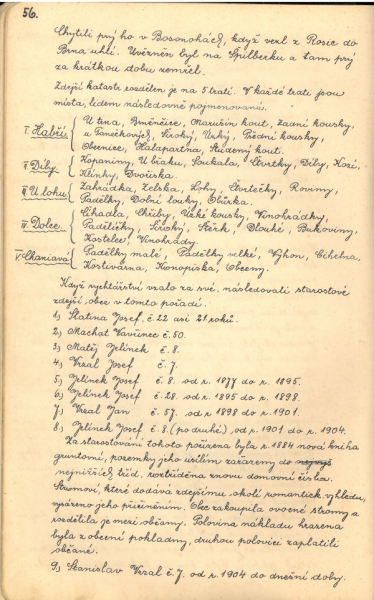 56.
Chytili prý ho v Bosonohách, když vezl z Rosic do
Brna uhlí. Uvězněn byl na Špilberku a tam prý
za krátkou dobu zemřel.
Zdejší katastr rozdělen je na 5 tratí. V každé trati jsou
místa, lidem následovně pojmenovaná.
I. Habří { U trna, Brněnčice, Marušin kout, Zadní kousky,
u Panáčkových, Široký, Úzký, Přední kousky,
Obecnice, Halapartna, Studený kout.
II. Díly { Kopaniny, U braku, Soukala, Čtvrtky, Díly, Kozí,
Klínky, Dvořiska.
III. U lohu { Zahrádka, Zelska, Lohy, Čtvrtečky, Roviny,
Padělky, Dolní louky, Obůrka.
IV. Dolce { Číhadla, Chřiby, Úzké kousky, Vinohrádky,
Padělíčky, Široský, Štěrk, Dlouhé, Bukoviny,
Kostelec, Vinohrady.
V. { Padělky malé, Padělky velké, Výhon, Cihelna,
Hostivárna, Konopiska, Obecný.
Když rychtářství vzalo za své, následovali starostové
zdejší obce v tomto pořadí.
1, Šlatina Josef, č. 22 asi 21 roků.
2, Machat Vavřinec č. 50.
3, Matěj Jelínek č. 8.
4, Vrzal Josef č. 7.
5, Jelínek Josef č. 8. od r. 1877 do r. 1895.
6, Jelínek Josef č. 28. od r. 1895 do r. 1898.
7, Vrzal Jan č. 57. od r. 1898 do r. 1901.
8, Jelínek Josef č. 8. (po druhé) od r. 1901 do r. 1904.
Za starostování tohoto pořízena byla r. 1884 nová kniha
gruntovní, pozemky jeho úsilím zařazeny do
nejnižších tříd, roztříděna znovu domovní čísla.
Stromoví, které dodává zdejšímu okolí romantick. vzhledu,
vysázeno jeho přičiněním. Obec zakoupila ovocné stromy a
rozdělila je mezi občany. Polovina nákladu hrazena
byla z obecní pokladny, druhou polovici zaplatili
občané.
9, Stanislav Vrzal č. 7. od r. 1904 do dnešní doby.